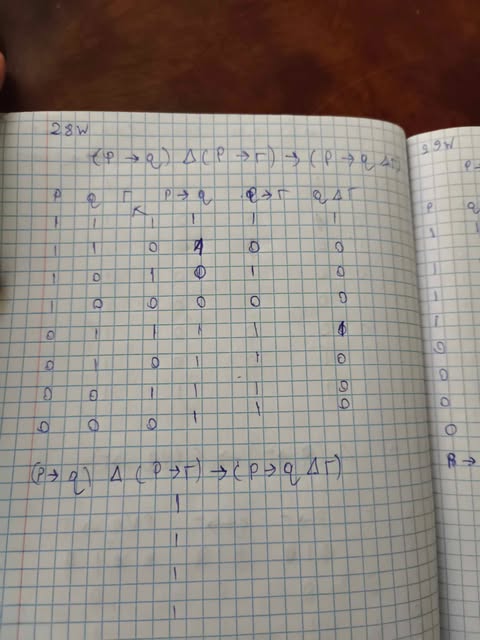 28W
(P → q) Δ (P → r) → (P → q Δ r)
P q r P → q P → r q Δ r
1 1 1 1 1 1
1 1 0 1 0 0
1 0 1 0 1 0
1 0 0 0 0 0
0 1 1 1 1 1
0 1 0 1 1 0
0 0 1 1 1 0
0 0 0 1 1 0
(P → q) Δ (P → r) → (P → q Δ r)
1
1
1
1
29W
P
q
1
1
1
1
1
0
0
0
0